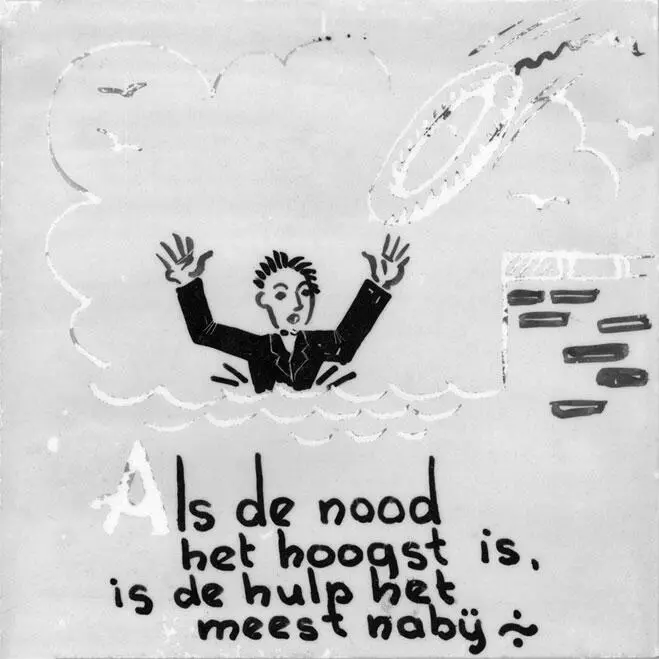 Als de nood
het hoogst is,
is de hulp het
meest nabij